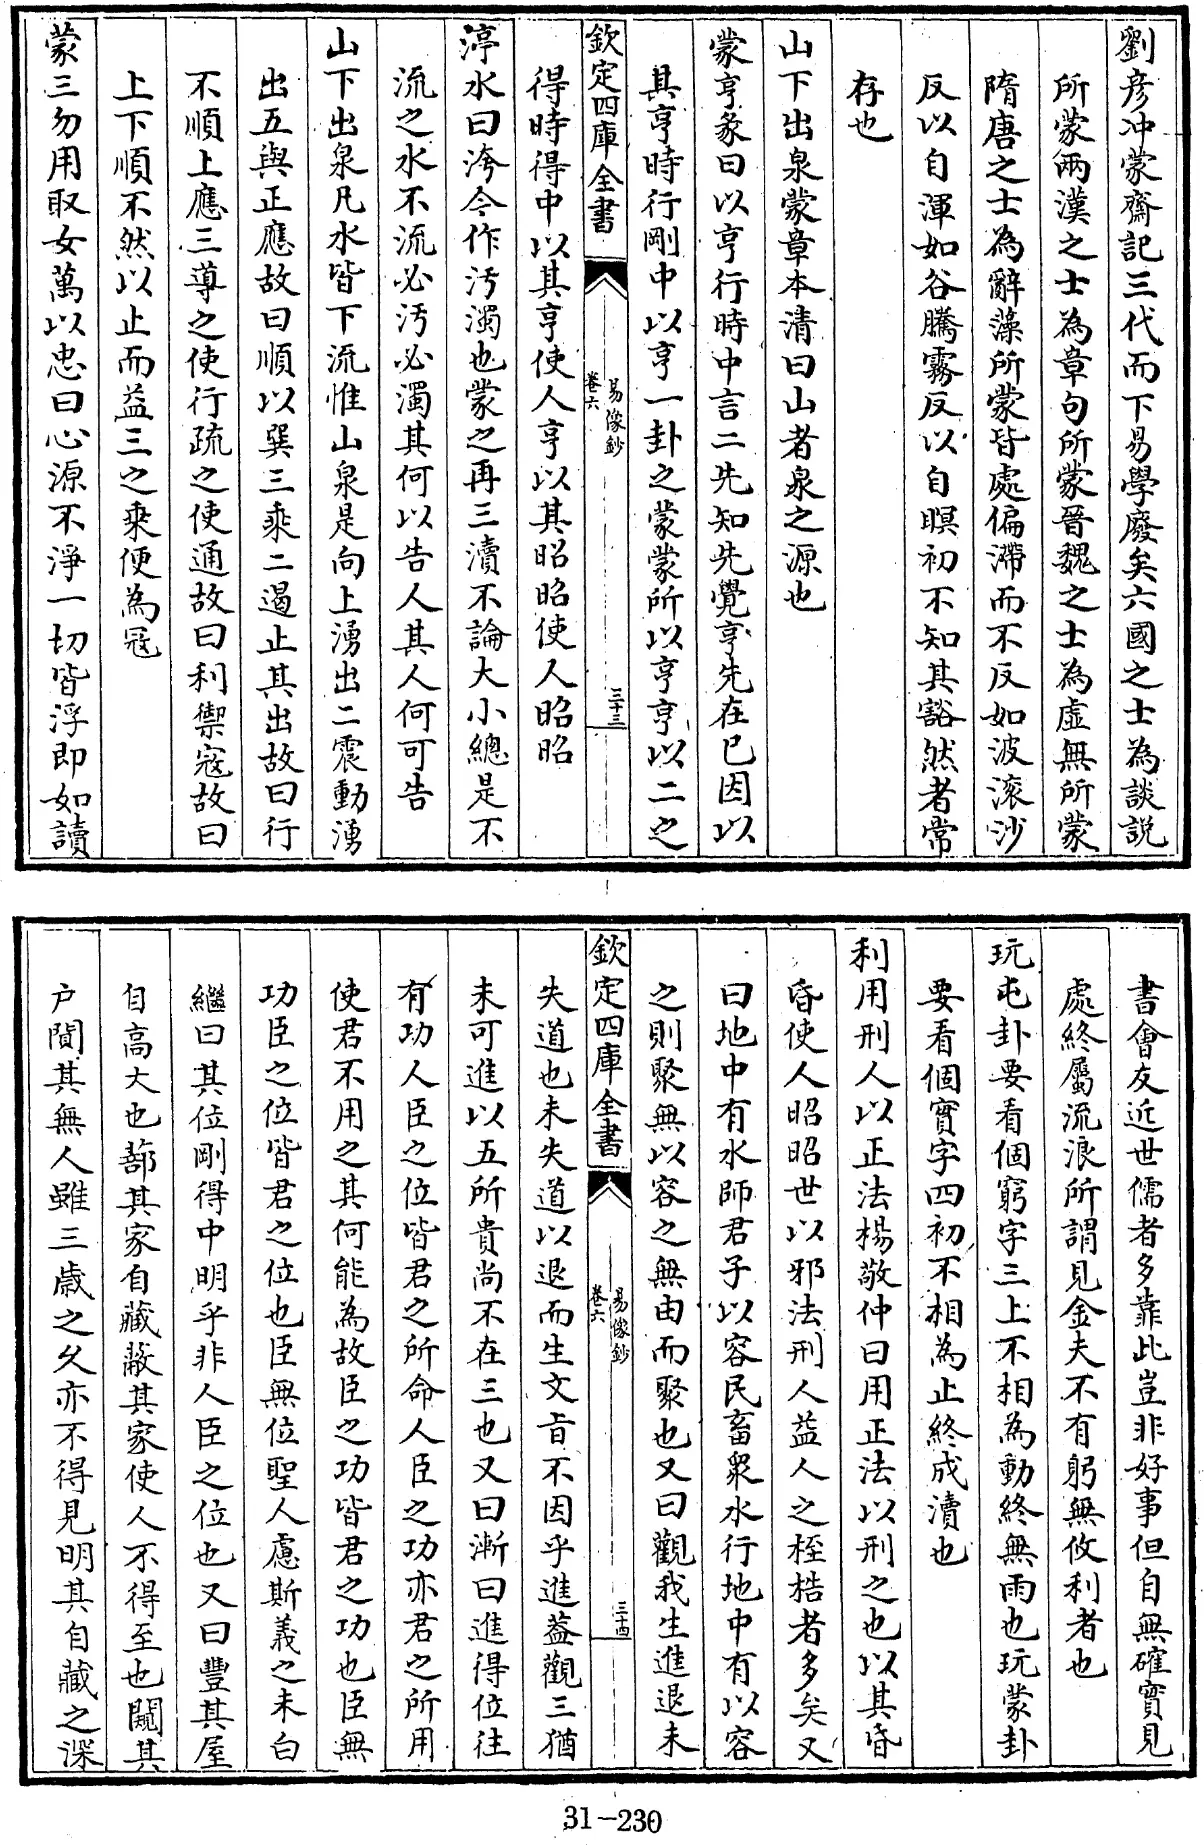 劉彦冲蒙齋記三代而下易學廢矣六國之士為談説
所蒙兩漢之士為章句所蒙晉魏之士為虛無所蒙
隋唐之士為辭藻所蒙皆處偏滯而不反如波滚沙
反以自渾如谷騰霧反以自暝初不知其豁然者常
存也
山下出泉蒙章本清曰山者泉之源也
蒙亨彖曰以亨行時中言二先知先覺亨先在已因以
其亨時行剛中以亨一卦之蒙蒙所以亨亨以二之
欽定四庫全書
易像鈔
卷六
三十三
得時得中以其亨使人亨以其昭昭使人昭昭
渟水曰洿今作汚濁也蒙之再三瀆不論大小總是不
流之水不流必汚必濁其何以告人其人何可告
山下出泉凡水皆下流惟山泉是向上湧出二震動湧
出五與正應故曰順以巽三乘二遏止其出故曰行
不順上應三導之使行疏之使通故曰利禦寇故曰
上下順不然以止而益三之乘便為寇
蒙三勿用取女萬以忠曰心源不淨一切皆浮即如讀
書會友近世儒者多靠此豈非好事但自無確實見
處終屬流浪所謂見金夫不有躬無攸利者也
玩屯卦要看個窮字三上不相為動終無雨也玩蒙卦
要看個實字四初不相為止終成瀆也
利用刑人以正法楊敬仲曰用正法以刑之也以其昏
昏使人昭昭世以邪法刑人益人之桎梏者多矣又
曰地中有水師君子以容民畜衆水行地中有以容
之則聚無以容之無由而聚也又曰觀我生進退未
欽定四庫全書
易像鈔
卷六
三十四
失道也未失道以退而生文㫖不因乎進葢觀三猶
未可進以五所貴尚不在三也又曰漸曰進得位往
有功人臣之位皆君之所命人臣之功亦君之所用
使君不用之其何能為故臣之功皆君之功也臣無
功臣之位皆君之位也臣無位聖人慮斯義之未白
繼曰其位剛得中明乎非人臣之位也又曰豐其屋
自高大也蔀其家自藏蔽其家使人不得至也闚其
户闃其無人雖三歲之乆亦不得見明其自藏之深
31-230